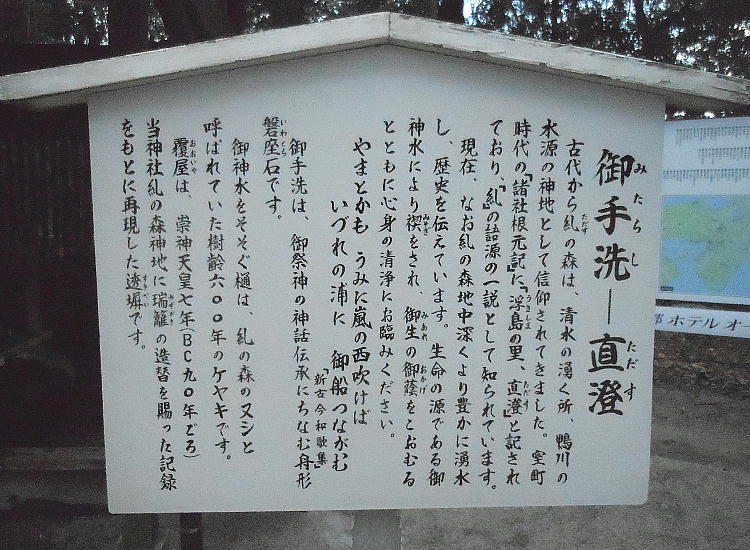 御手洗―直澄
みたらし
ただす
古代から糺の森は、清水の湧く所、鴨川の
ただす
水源の神地として信仰されてきました。室町
時代の『諸社根元記』に『浮島の里、直澄』と記され
うきしま
ただす
ており、『糺』の語源の一説として知られています。
現在、なお糺の森地中深くより豊かに湧水
し、歴史を伝えています。生命の源である御
神水により禊をされ、御生の御蔭をこおむる
みそぎ
みあれ
おかげ
とともに心身の清浄にお臨みください。
やまとかも うみに嵐の西吹けば
いづれの浦に 御船つながむ
『新古今和歌集』
御手洗は、御祭神の神話伝承にちなむ舟形
磐座石です。
いわくら
御神水をそそぐ樋は、糺の森のヌシと
呼ばれていた樹齢六〇〇年のケヤキです。
覆屋は、崇神天皇七年(BC九〇年ごろ)
おおいや
当神社糺の森神地に瑞籬の造替を賜った記録
みずがき
をもとに再現した透塀です。
すきべい
ホテルオー